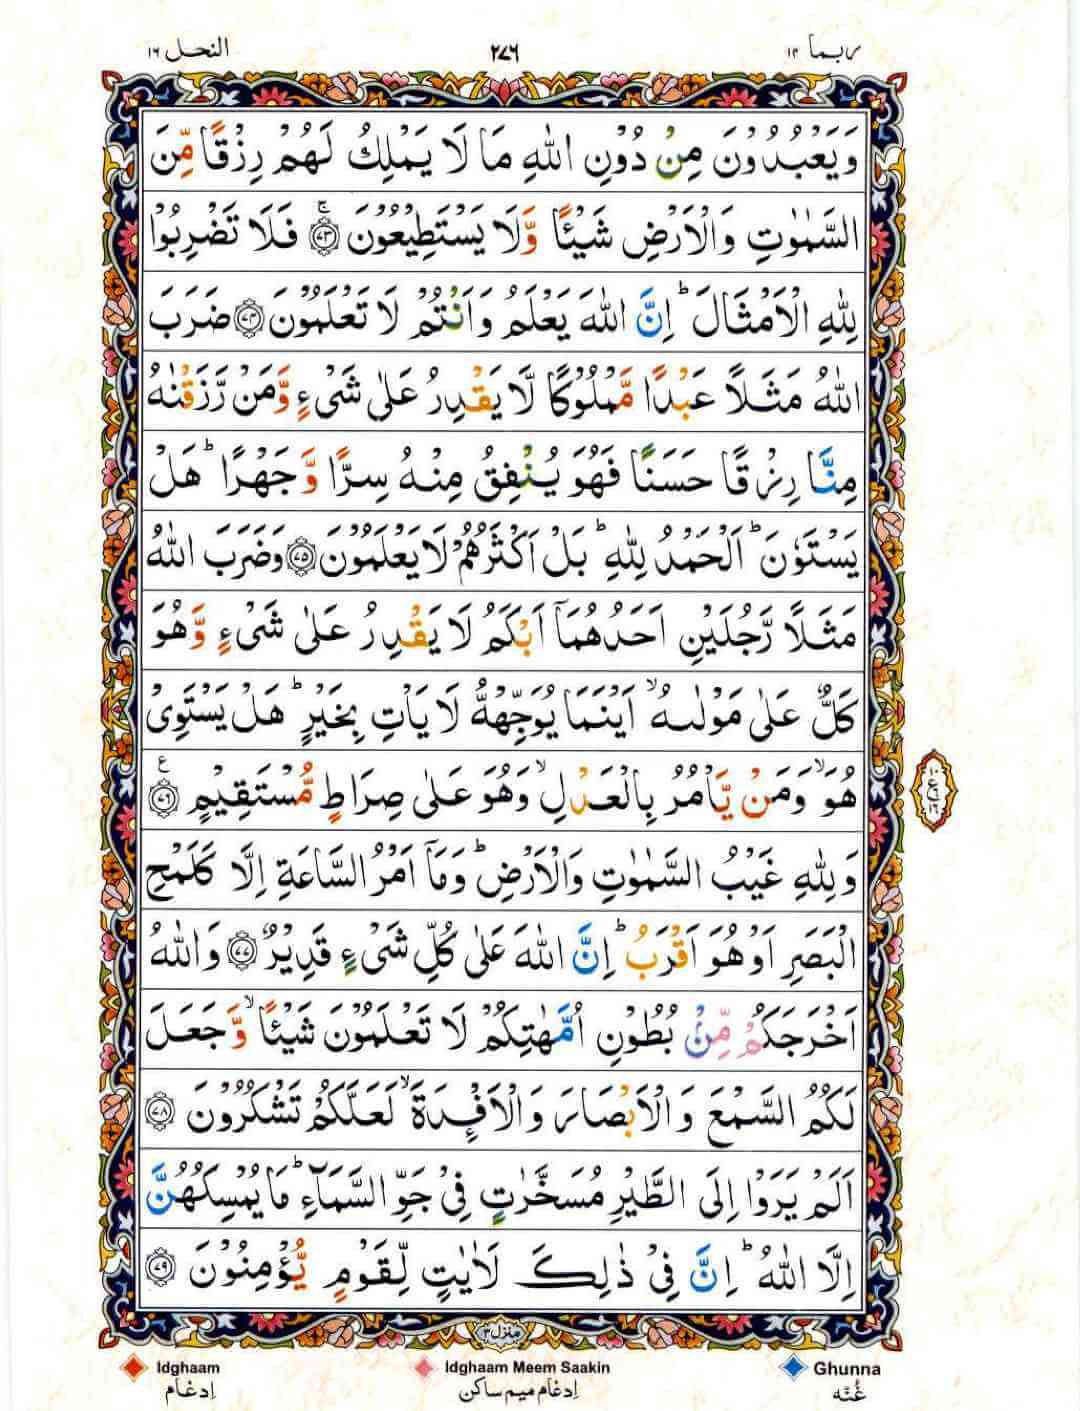 ربما ١٤
٢٧٦
النحل ١٦
وَيَعْبُدُوْنَ مِنْ دُوْنِ اللّٰهِ مَا لَا يَمْلِكُ لَهُمْ رِزْقًا مِّنَ
السَّمٰوٰتِ وَالْاَرْضِ شَيْـًٔا وَّلَا يَسْتَطِيْعُوْنَ ۚ‏﴿٧٣﴾ فَلَا تَضْرِبُوْا
لِلّٰهِ الْاَمْثَالَ ؕ اِنَّ اللّٰهَ يَعْلَمُ وَاَنْتُمْ لَا تَعْلَمُوْنَ ﴿٧٤﴾ ضَرَبَ
اللّٰهُ مَثَلًا عَبْدًا مَّمْلُوْكًا لَّا يَقْدِرُ عَلٰى شَىْءٍ وَّمَنْ رَّزَقْنٰهُ
مِنَّا رِزْقًا حَسَنًا فَهُوَ يُنْفِقُ مِنْهُ سِرًّا وَّجَهْرًا ؕ هَلْ
يَسْتَوٗنَ ؕ اَلْحَمْدُ لِلّٰهِ ؕ بَلْ اَكْثَرُهُمْ لَا يَعْلَمُوْنَ ﴿٧٥﴾ وَضَرَبَ اللّٰهُ
مَثَلًا رَّجُلَيْنِ اَحَدُهُمَاۤ اَبْكَمُ لَا يَقْدِرُ عَلٰى شَىْءٍ وَّهُوَ
كَلٌّ عَلٰى مَوْلٰٮهُ ۙ اَيْنَمَا يُوَجِّهْهُّ لَا يَاْتِ بِخَيْرٍ ؕ هَلْ يَسْتَوِىْ
هُوَ ۙ وَمَنْ يَّاْمُرُ بِالْعَدْلِ ۙ وَهُوَ عَلٰى صِرَاطٍ مُّسْتَقِيْمٍ ﴿٧٦﴾ ع
وَلِلّٰهِ غَيْبُ السَّمٰوٰتِ وَالْاَرْضِ ؕ وَمَاۤ اَمْرُ السَّاعَةِ اِلَّا كَلَمْحِ
الْبَصَرِ اَوْ هُوَ اَقْرَبُ ؕ اِنَّ اللّٰهَ عَلٰى كُلِّ شَىْءٍ قَدِيْرٌ ﴿٧٧﴾ وَاللّٰهُ
اَخْرَجَكُمْ مِّنْۢ بُطُوْنِ اُمَّهٰتِكُمْ لَا تَعْلَمُوْنَ شَيْـًٔا ۙ وَّجَعَلَ
لَكُمُ السَّمْعَ وَالْاَبْصَارَ وَالْاَفْـِٕدَةَ ۙ لَعَلَّكُمْ تَشْكُرُوْنَ ﴿٧٨﴾
اَلَمْ يَرَوْا اِلَى الطَّيْرِ مُسَخَّرٰتٍ فِىْ جَوِّ السَّمَآءِ ؕ مَا يُمْسِكُهُنَّ
اِلَّا اللّٰهُ ؕ اِنَّ فِىْ ذٰلِكَ لَاٰيٰتٍ لِّقَوْمٍ يُّؤْمِنُوْنَ ﴿٧٩﴾
منزل ٣
Idghaam Idghaam Meem Saakin Ghunna
اِدغام اِدغام میم ساکن غُنَّه